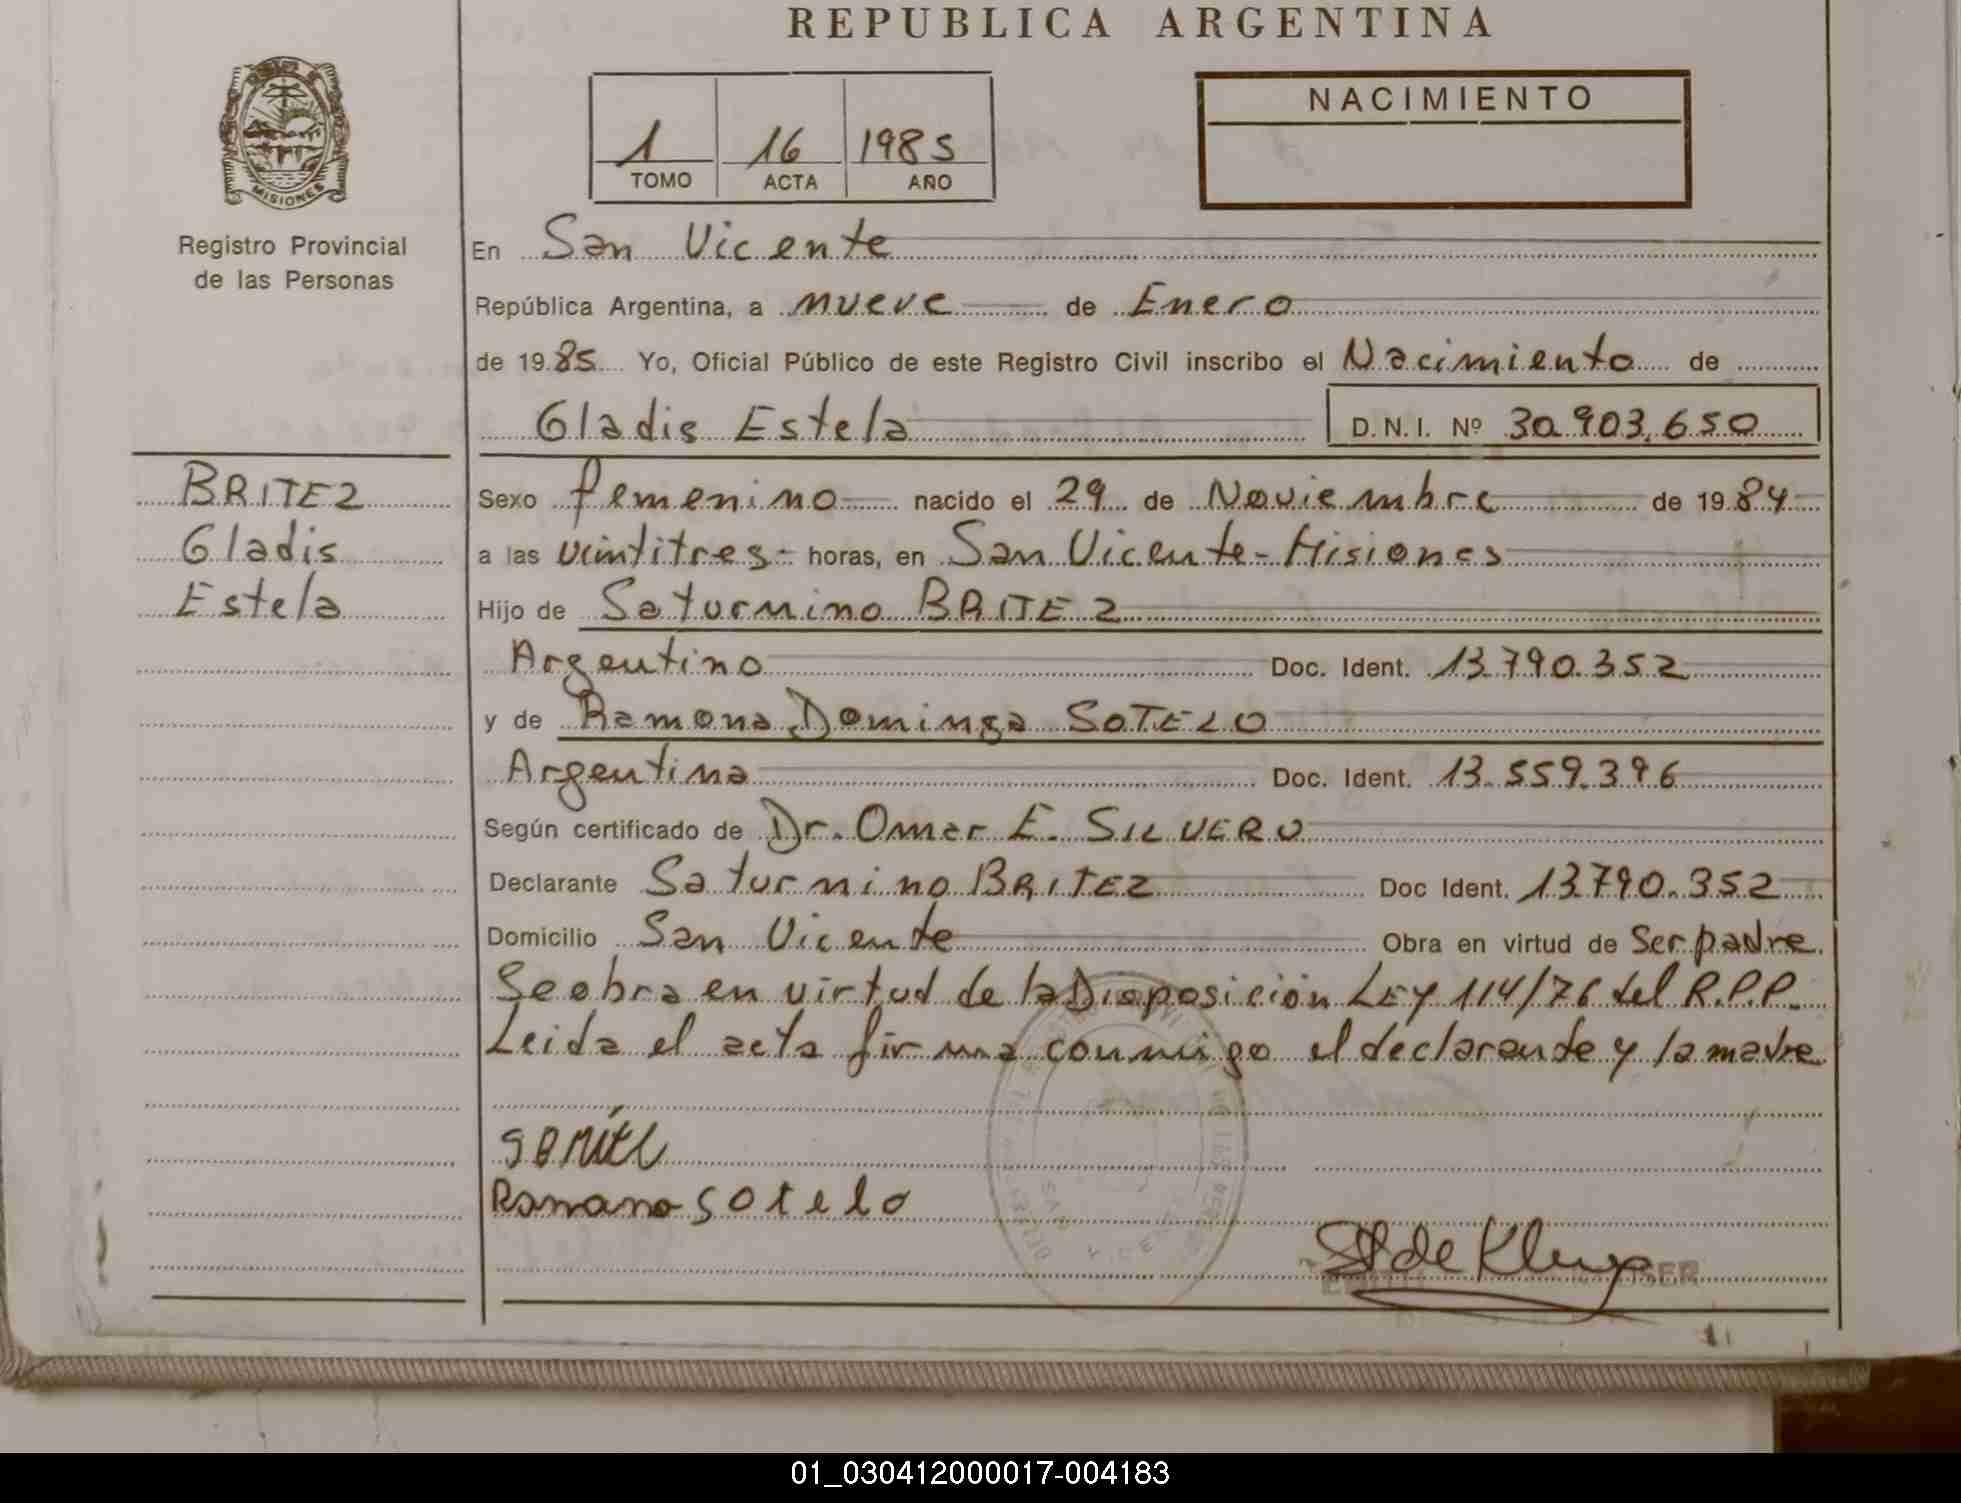 REPUBLICA ARGENTINA
MISIONES
Registro Provincial
de las Personas
1 16 1985
TOMO ACTA AÑO
NACIMIENTO
En San Vicente
República Argentina, a nueve de Enero
de 1985 Yo, Oficial Público de este Registro Civil inscribo el Nacimiento de
Gladis Estela D.N.I. Nº 30.903.650
BRITEZ
Gladis
Estela
Sexo femenino nacido el 29 de Noviembre de 1984
a las veintitres horas, en San Vicente-Misiones
Hijo de Saturnino BRITEZ
Argentino Doc. Ident. 13.790.352
y de Ramona Dominga SOTELO
Argentina Doc. Ident. 13.559.396
Según certificado de Dr. Omar E. SILVERO
Declarante Saturnino BRITEZ Doc Ident. 13.790.352
Domicilio San Vicente Obra en virtud de Ser padre.
Se obra en virtud de la Disposición LEY 114/76 del R.P.P.
Leida el acta firma conmigo el declarante y la madre
Sotelo
de Kluge
01_030412000017-004183